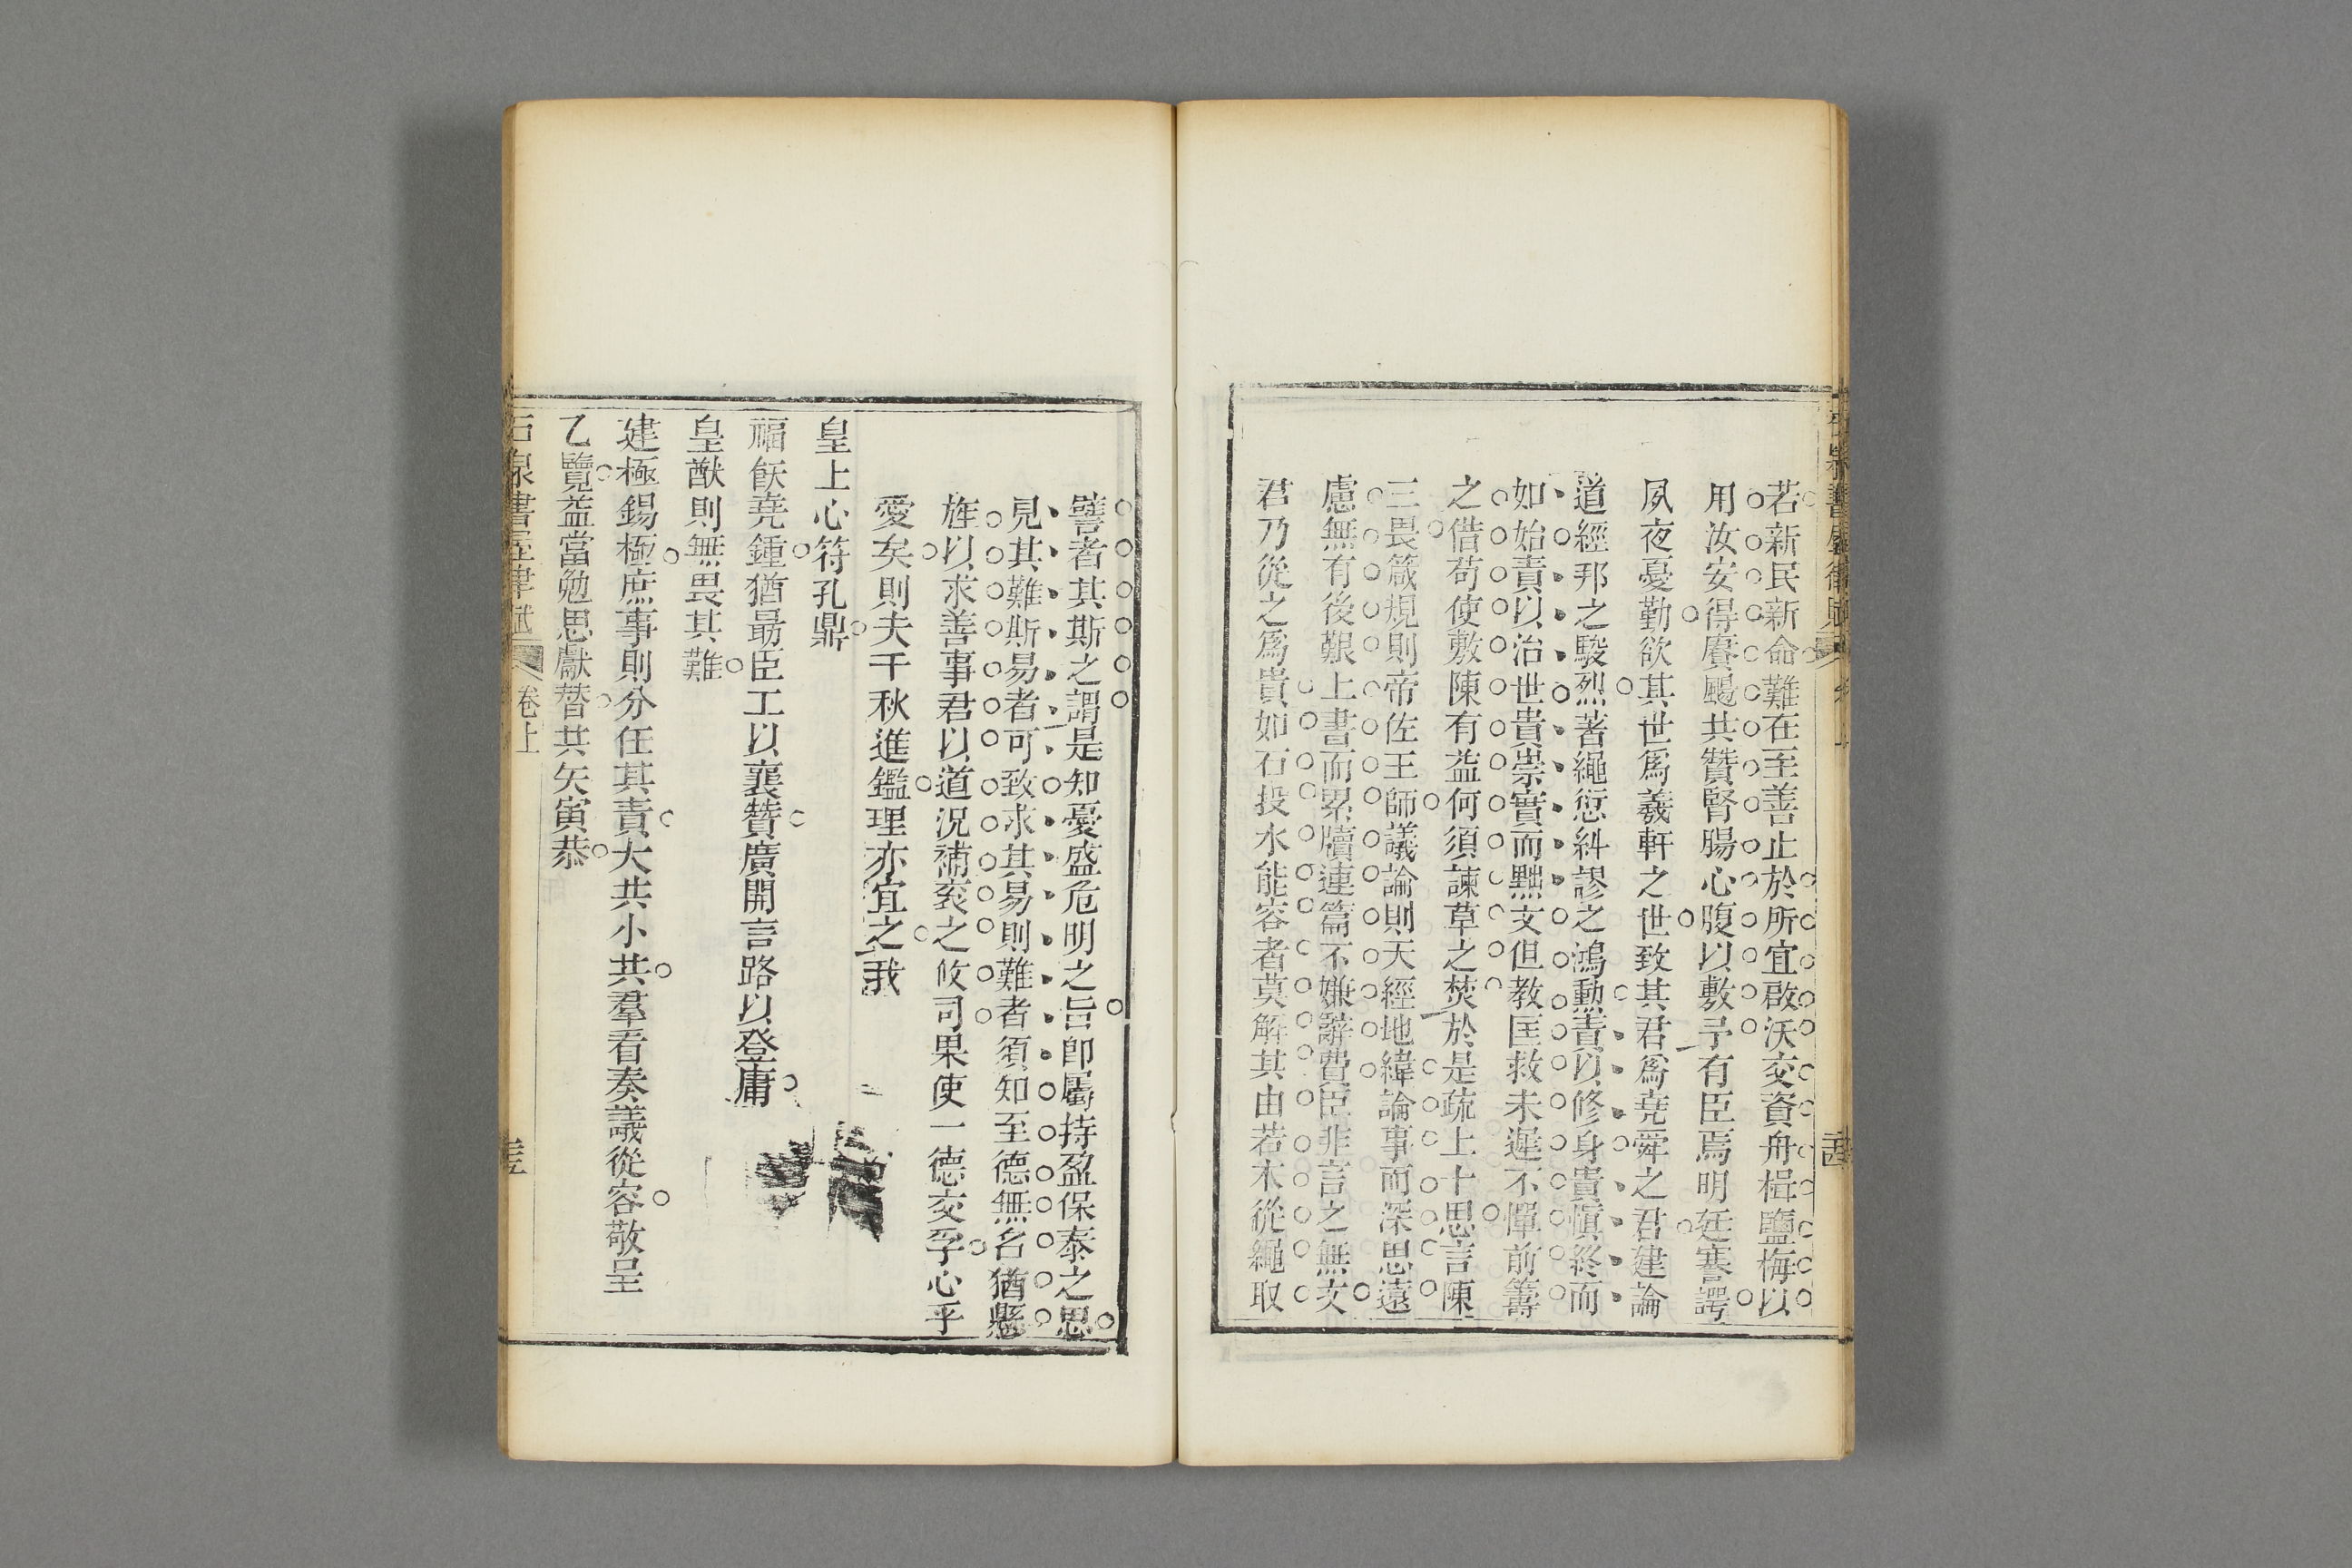 若新民新命難在至善止於所宜啟沃交資舟楫鹽梅以
用汝安得賡颺共贊腎腸心腹以敷予有臣焉明廷謇諤
夙夜憂勤欲其世爲羲軒之世致其君爲堯舜之君建論
道經邦之駿烈著繩愆糾謬之鴻勳責以修身貴愼終而
如始責以治世貴崇實而黜文但教匡救未遲不憚前籌
之借苟使敷陳有益何須諫草之焚於是疏上十思言陳
三畏箴規則帝佐王師議論則天經地緯論事而深思遠
慮無有後艱上書而累牘連篇不嫌辭費臣非言之無文
君乃從之爲貴如石投水能容者莫解其由若木從繩取
譬者其斯之謂是知憂盛危明之旨卽屬持盈保泰之思
見其難斯易者可致求其易則難者須知至德無名猶懸
旌以求善事君以道況補袞之攸司果使一德交孚心乎
愛矣則夫千秋進鑑理亦宜之我
皇上心符孔鼎
福飫堯鍾猶勗臣工以襄贊廣開言路以登庸
皇猷則無畏其難
建極錫極庶事則分任其責大共小共羣看奏議從容敬呈
乙覽益當勉思獻替共矢寅恭
石泉書屋律賦 卷上